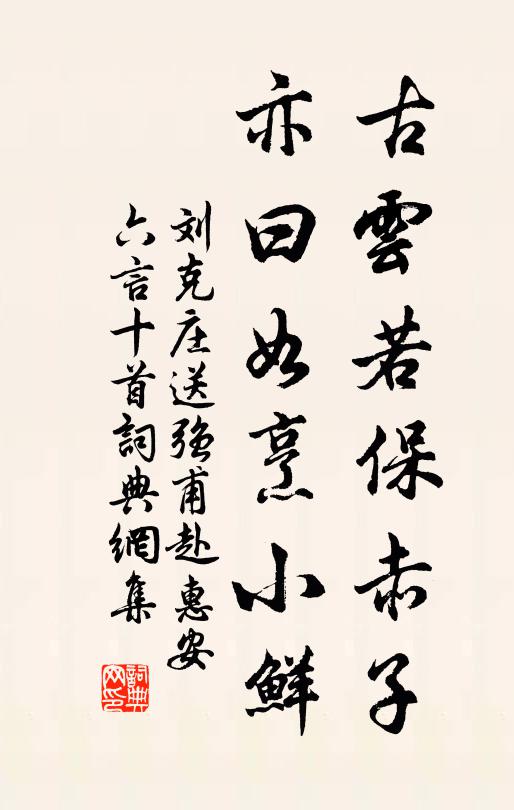 古雲若保赤子
亦曰如烹小鮮
刘克庄送强甫赴惠安
六言十首詞典網集
詞典网印